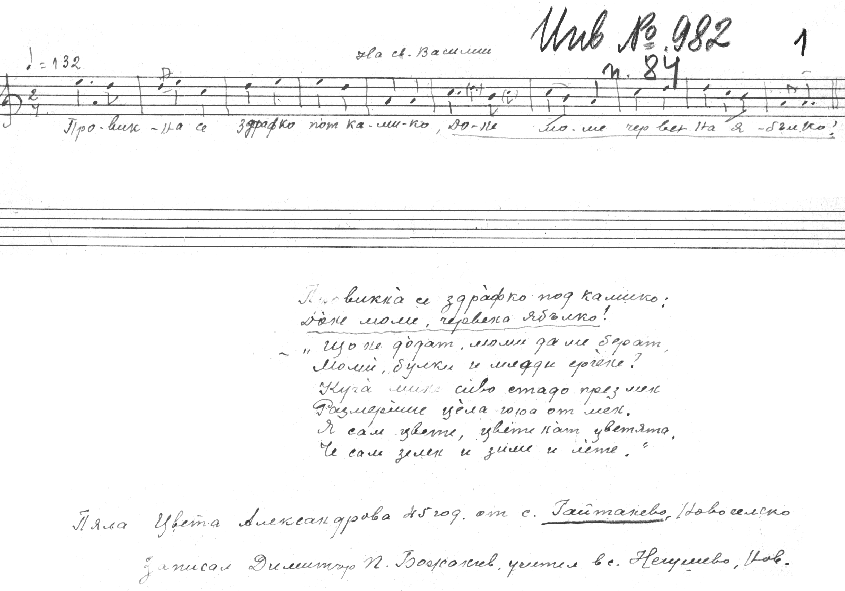 Инв №. 982
1
п. 84
♩ = 132
На св. Василий
2/4
Про-вик-на се здрафко пот ка-ми-ко, До-не мо-ме чер вен на я-бъл-ко!
викна се здрафко под камико:
Доне моме, червена ябълко!
„Що не додат, моми да ме берат,
Моми, булки и млади ергене?
сиво стадо през мен
цела от мен.
Я сам цвете, цвете кат цветята,
Че сам зелен и зиме и лете."
Пяла Цвета Александрова 45 год. от с. Гайтанево, Новоселско
Записал Димитър П. Божанов, учител в с. Негушево, Нов.